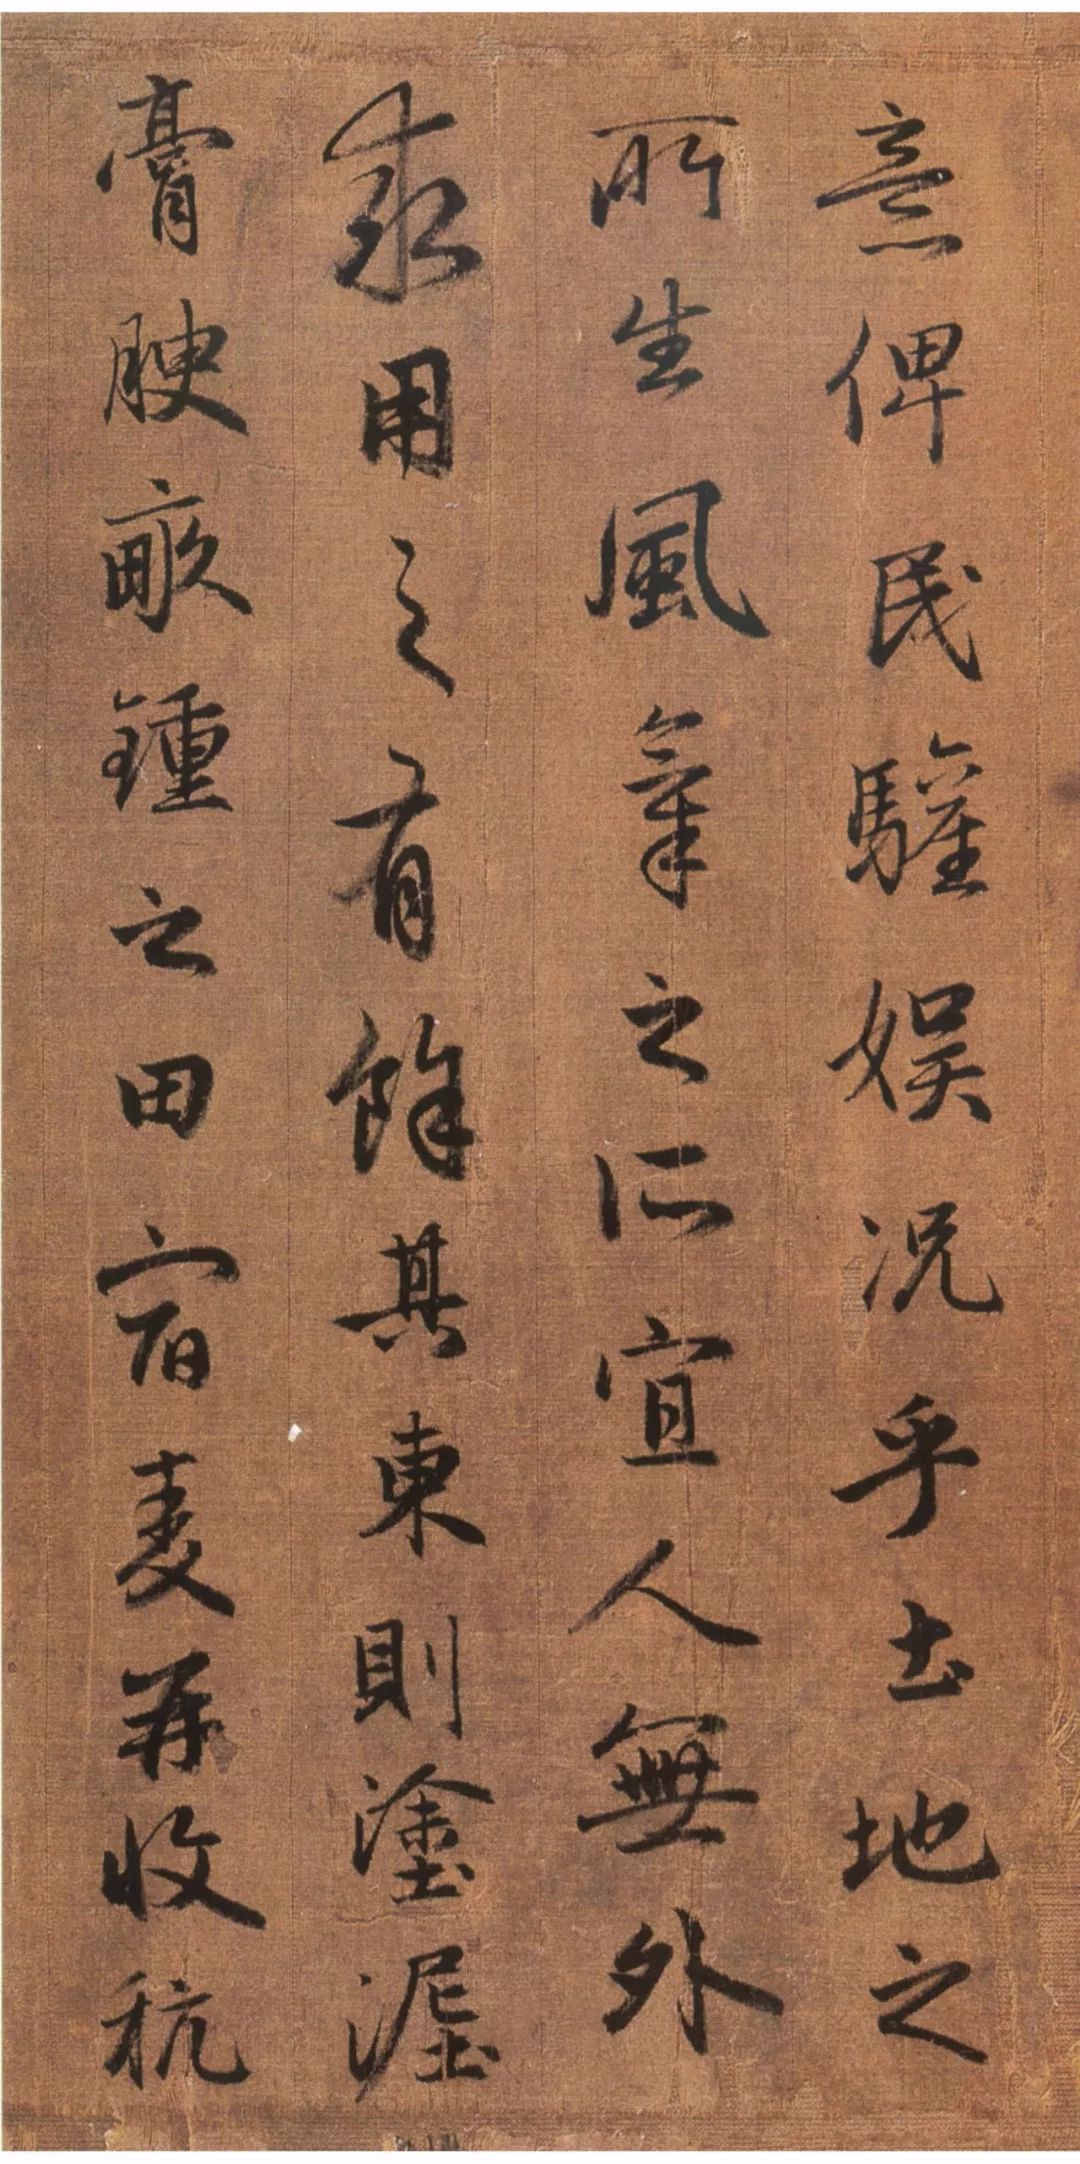 意俾民驩娛况乎土地之
所生風氣之所宜人無外
求用之有餘其東則塗泥
膏腴畝鍾之田宿麥再收秔